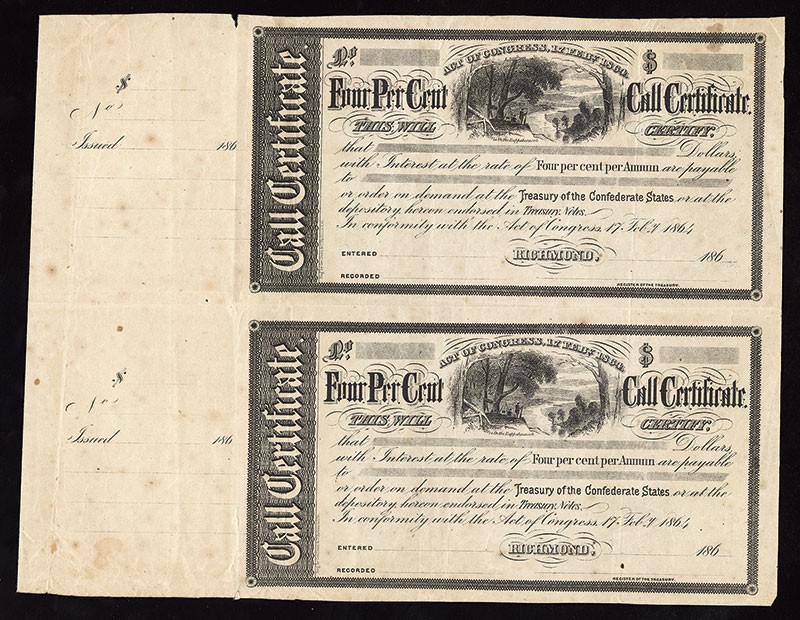 No.
Issued 186
Call Certificate.
No.
ACT OF CONGRESS, 17 FEBY. 1864.
$
Four Per Cent
Call Certificate.
THIS WILL
CERTIFY,
that Dollars,
with Interest at the rate of Four per cent per Annum are payable
to
or order on demand at the Treasury of the Confederate States or at the
depository hereon endorsed in Treasury Notes.
In conformity with the Act of Congress, 17. Feb.y 1864
ENTERED
RICHMOND, 186
RECORDED
REGISTER OF THE TREASURY.
No.
Issued 186
Call Certificate.
No.
ACT OF CONGRESS, 17 FEBY. 1864.
$
Four Per Cent
Call Certificate.
THIS WILL
CERTIFY,
that Dollars,
with Interest at the rate of Four per cent per Annum are payable
to
or order on demand at the Treasury of the Confederate States or at the
depository hereon endorsed in Treasury Notes.
In conformity with the Act of Congress, 17. Feb.y 1864
ENTERED
RICHMOND, 186
RECORDED
REGISTER OF THE TREASURY.